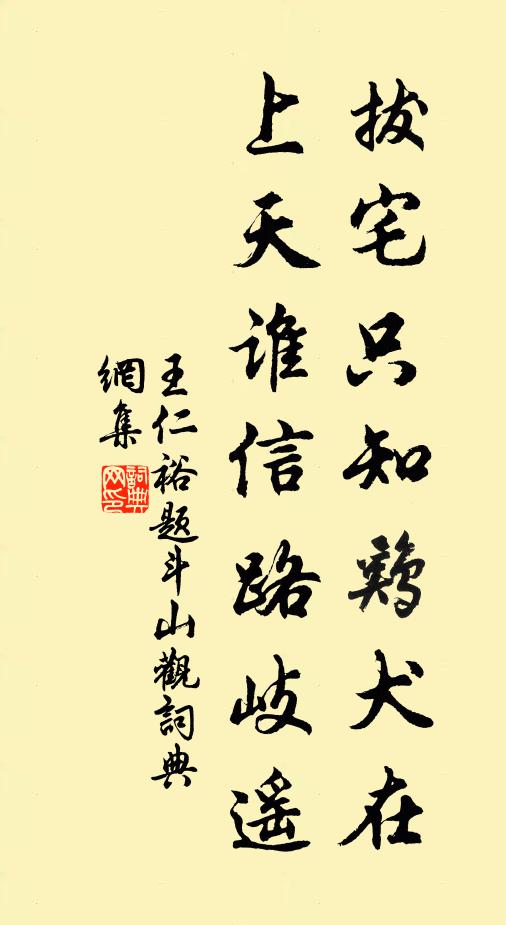 拔宅只知鷄犬在
上天誰信路歧遥
王仁裕題斗山觀詞典
網集
詞典網印